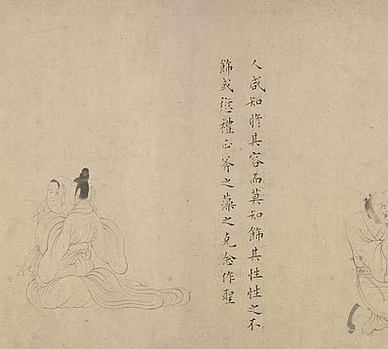 人咸知脩其容而莫知飾其性性之不
飾或愆禮正斧之藻之克念作聖